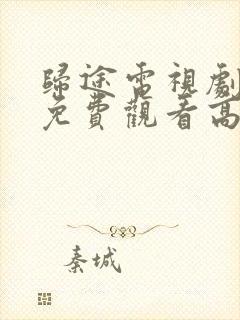 歸途電視劇
免費觀看高
秦城